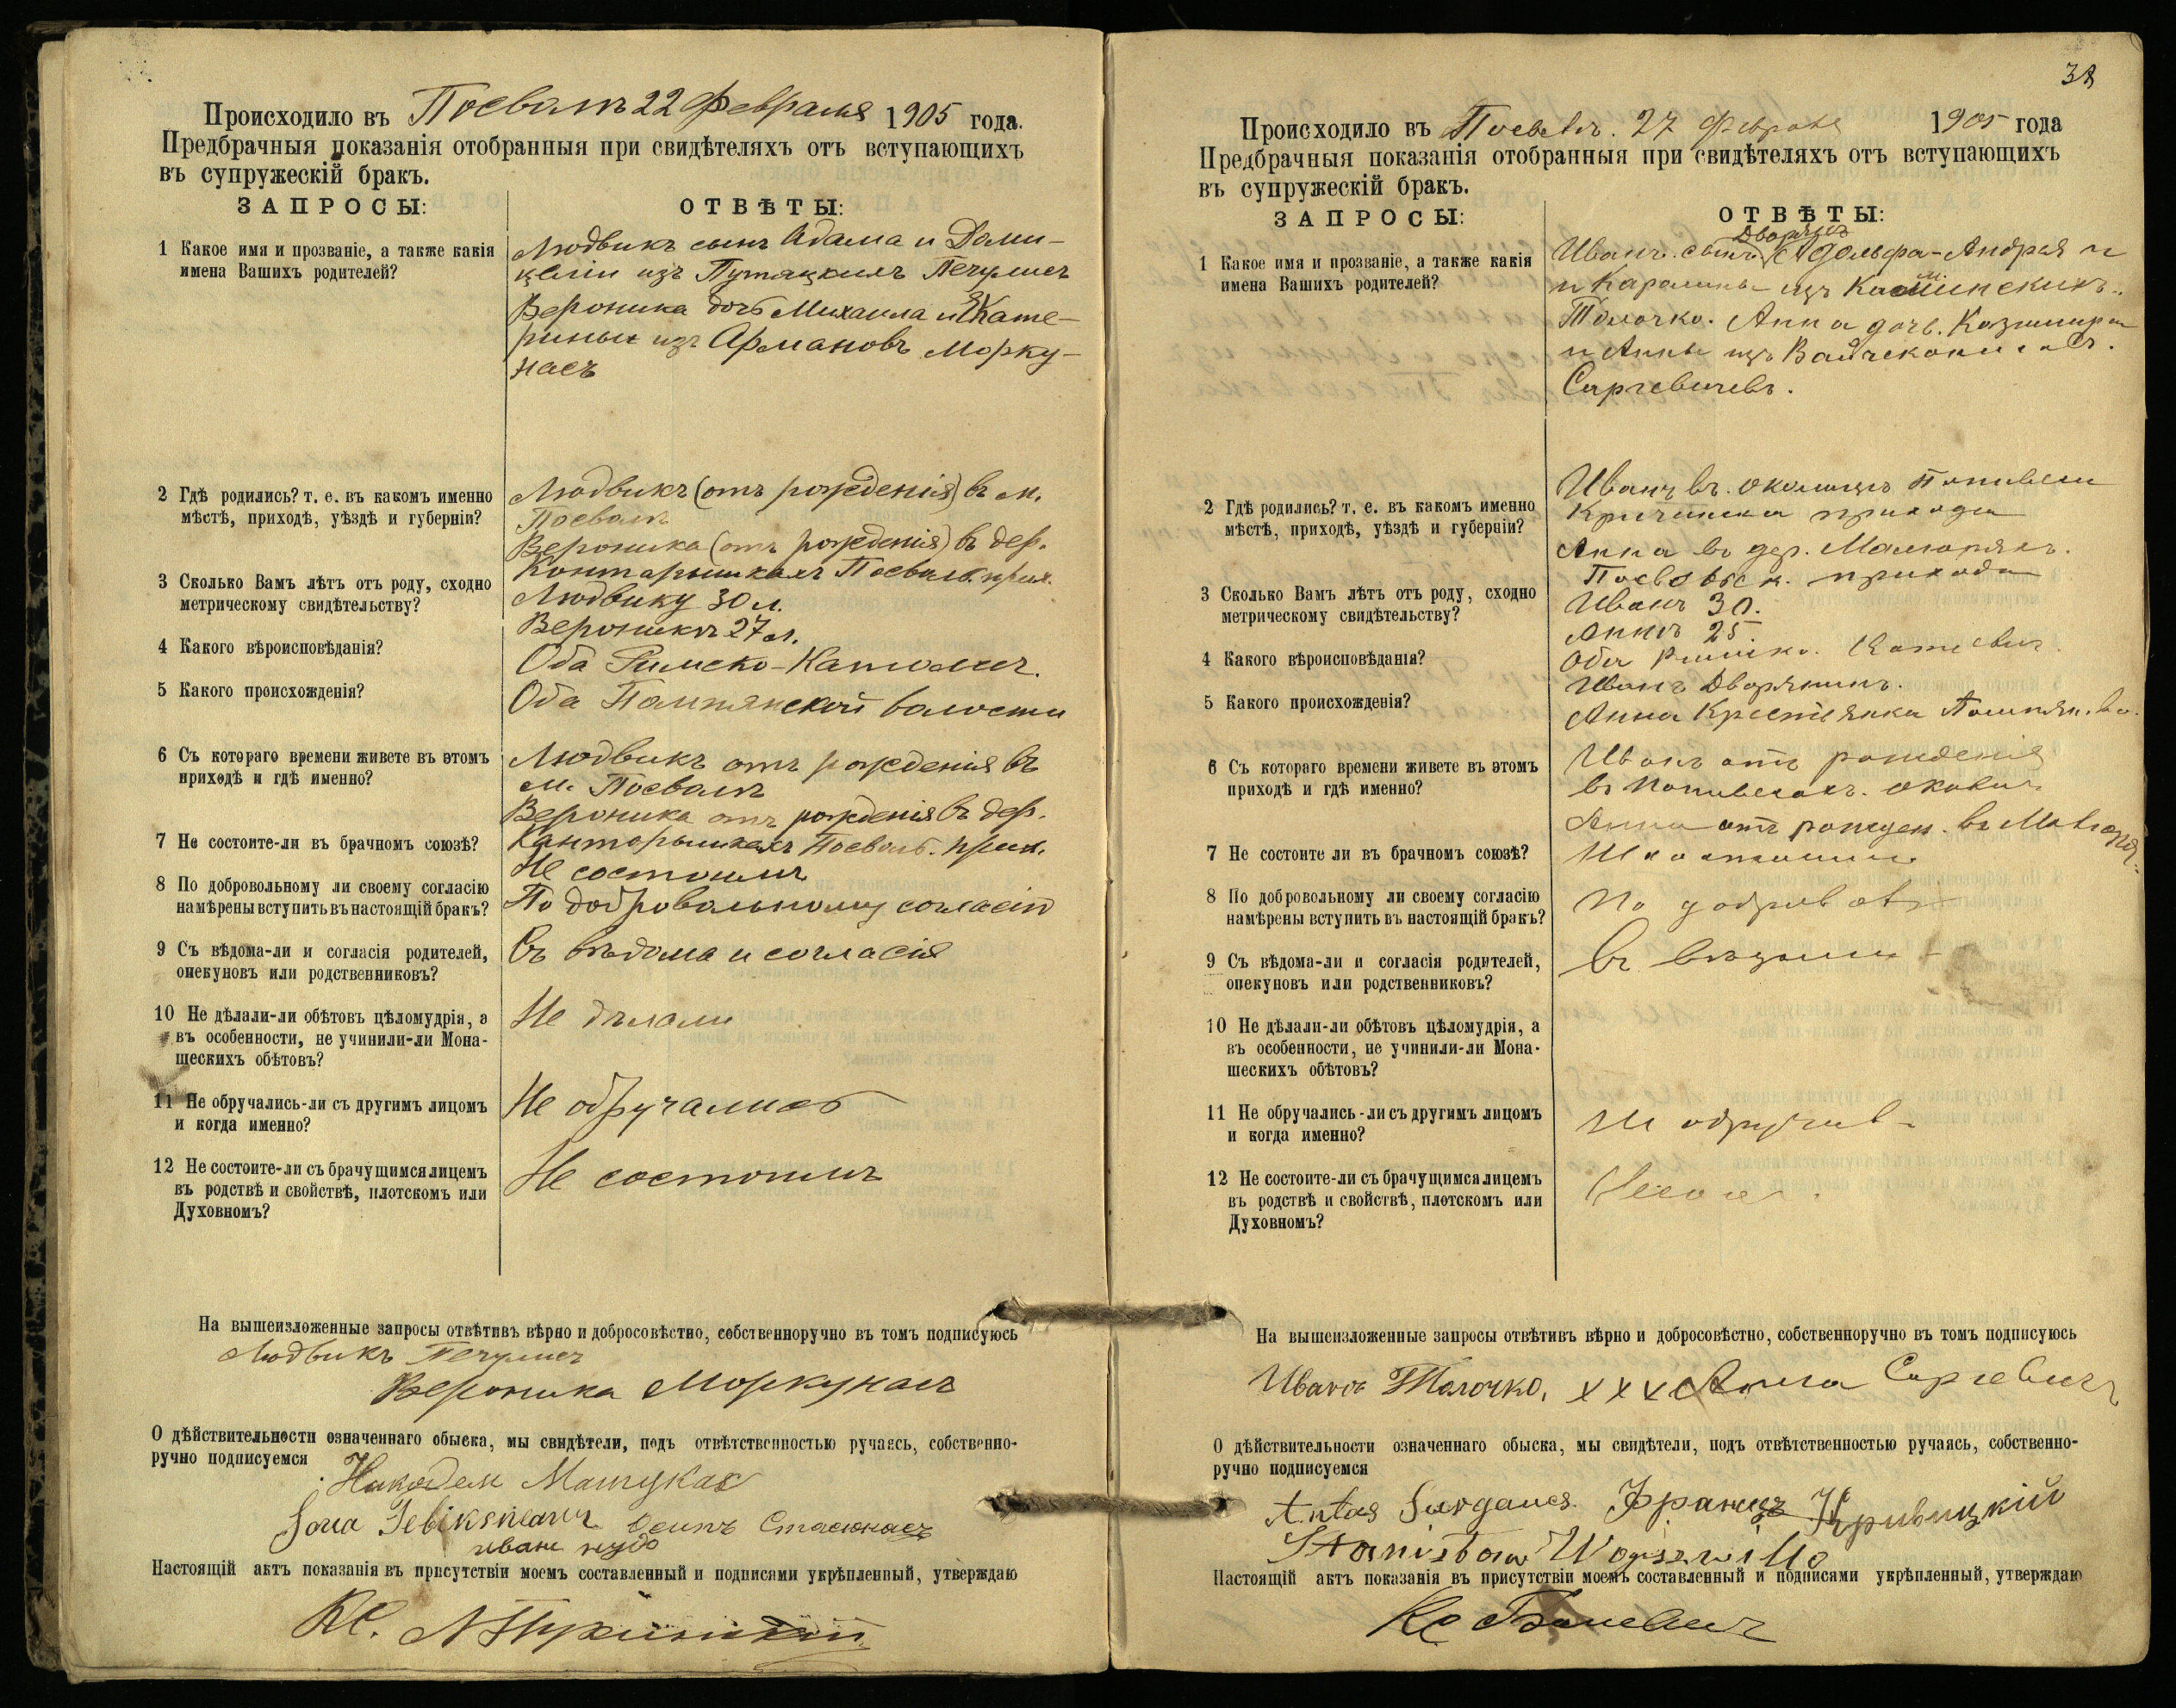 Происходило въ Посвалѣ 22 Февраля 1905 года.
Предбрачныя показанія отобранныя при свидѣтеляхъ отъ вступающихъ
въ супружескій бракъ.
ЗАПРОСЫ:
ОТВѢТЫ:
1 Какое имя и прозваніе, а также какія
имена Вашихъ родителей?
Людвикъ сынъ Адама и Доми-
целіи изъ Путяцкихъ Печулисъ
Вероника дочь Михаила и Кате-
рины изъ АрмановъМорку-
насъ
2 Гдѣ родились? т. е. въ какомъ именно
мѣстѣ, приходѣ, уѣздѣ и губерніи?
Людвикъ (отъ рожденія) въ м.
Посвалѣ
Вероника (отъ рожденія) въ дер.
Контарышкахъ Посвол. прих.
3 Сколько Вамъ лѣтъ отъ роду, сходно
метрическому свидѣтельству?
Людвику 30 л.
Вероникѣ 27 л.
4 Какого вѣроисповѣданія?
Оба Римско-Католич.
5 Какого происхожденія?
Оба Помпянской волости
6 Съ котораго времени живете въ этомъ
приходѣ и гдѣ именно?
Людвикъ отъ рожденія въ
м. Посвалѣ
Вероника отъ рожденія въ дер.
Канторышкахъ Посвол. прих.
7 Не состоите-ли въ брачномъ союзѣ?
Не состоимъ
8 По добровольному ли своему согласію
намѣрены вступить въ настоящій бракъ?
По добровольному согласію
9 Съ вѣдома-ли и согласія родителей,
опекуновъ или родственниковъ?
Съ вѣдома и согласія
10 Не дѣлали-ли обѣтовъ цѣломудрія, а
въ особенности, не учинили-ли Мона-
шескихъ обѣтовъ?
Не дѣлали
11 Не обручались-ли съ другимъ лицомъ
и когда именно?
Не обручались
12 Не состоите-ли съ брачущимся лицемъ
въ родствѣ и свойствѣ, плотскомъ или
Духовномъ?
Не состоимъ
На вышеизложенные запросы отвѣтивъ вѣрно и добросовѣстно, собственноручно въ томъ подписуюсь
Людвикъ Печулисъ
Вероника Моркунасъ
О дѣйствительности означеннаго обыска, мы свидѣтели, подъ отвѣтственностью ручаясь, собственно-
ручно подписуемся
Никодем Матукас
Осипъ Стасюнасъ
Настоящій актъ показанія въ присутствіи моемъ составленный и подписями укрѣпленный, утверждаю
Кс.
38
Происходило въ Посвалѣ. 27 Февраля 1905 года
Предбрачныя показанія отобранныя при свидѣтеляхъ отъ вступающихъ
въ супружескій бракъ.
ЗАПРОСЫ:
ОТВѢТЫ:
1 Какое имя и прозваніе, а также какія
имена Вашихъ родителей?
Дворянъ
Иванъ. сынъ Адольфа-Андрея и
и Каралины изъ
Толочко. Анна дочь. Казимира
и Анны изъ
Саргевичевъ.
2 Гдѣ родились? т. е. въ какомъ именно
мѣстѣ, приходѣ, уѣздѣ и губерніи?
Иванъ въ. околицѣ
прихода
Анна въ дер.
прихода
3 Сколько Вамъ лѣтъ отъ роду, сходно
метрическому свидѣтельству?
Иванъ 30.
Аннѣ 25.
4 Какого вѣроисповѣданія?
Оба Римско.
5 Какого происхожденія?
Иванъ Дворянинъ.
Анна Крестьянка Помпян. во.
6 Съ котораго времени живете въ этомъ
приходѣ и гдѣ именно?
Иванъ отъ рожденія
въ
Анна отъ рожден. въ
7 Не состоите ли въ брачномъ союзѣ?
8 По добровольному ли своему согласію
намѣрены вступить въ настоящій бракъ?
По
9 Съ вѣдома-ли и согласія родителей,
опекуновъ или родственниковъ?
10 Не дѣлали-ли обѣтовъ цѣломудрія, а
въ особенности, не учинили-ли Мона-
шескихъ обѣтовъ?
11 Не обручались-ли съ другимъ лицомъ
и когда именно?
12 Не состоите-ли съ брачущимся лицемъ
въ родствѣ и свойствѣ, плотскомъ или
Духовномъ?
На вышеизложенные запросы отвѣтивъ вѣрно и добросовѣстно, собственноручно въ томъ подписуюсь
Иванъ Толочко. х х х Анна Саргевичъ
О дѣйствительности означеннаго обыска, мы свидѣтели, подъ отвѣтственностью ручаясь, собственно-
ручно подписуемся
Antas Францъ Кривицкій
Stanisław
Настоящій актъ показанія въ присутствіи моемъ составленный и подписями укрѣпленный, утверждаю
Кс